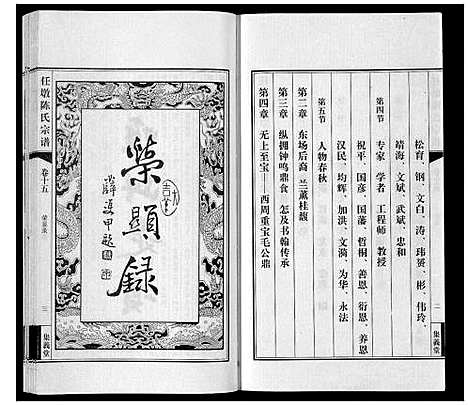 松育、钢、文白、涛、玮赟、彬、伟玲、
靖海、文斌、武斌、忠和
第四节
专家 学者 工程师 教授
祝平、国彦、国藩、哲桐、善恩、衍恩、养恩
汉民、均辉、加洪、文漪、为华、永法
第五节
人物春秋
第二章 东场后裔 兰薰桂馥
第三章 纵拥钟鸣鼎食 怎及书翰传承
第四章 无上至宝——西周重宝毛公鼎
二
集义堂
任墩陈氏宗谱
卷十五
荣显录
三
集义堂
榮顯録